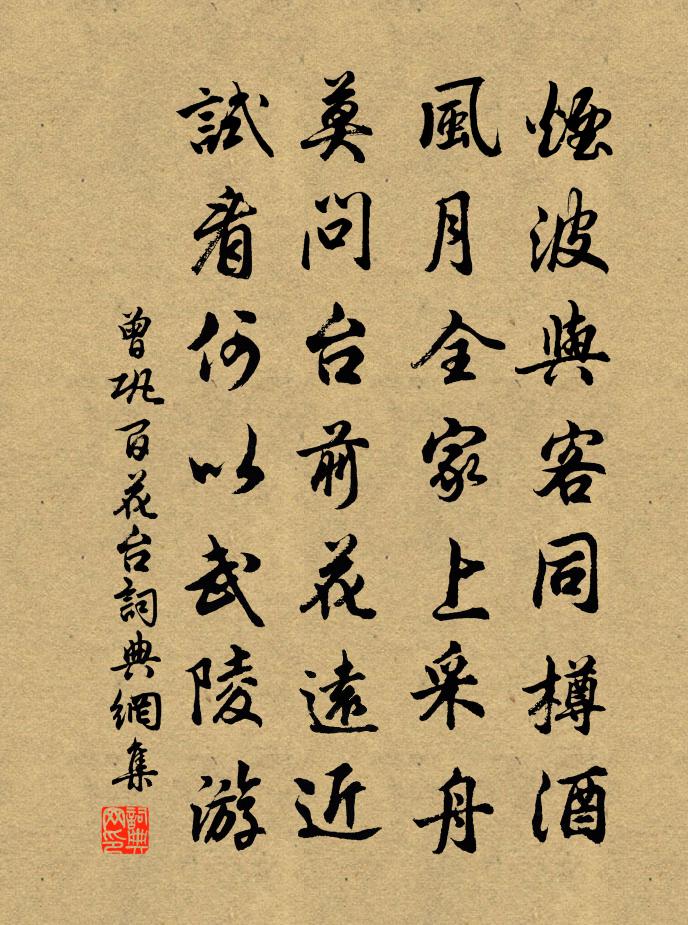 煙波與客同樽酒
風月全家上采舟
莫問台前花遠近
試看何以武陵游
曾巩百花台詞典網集
詞典網印